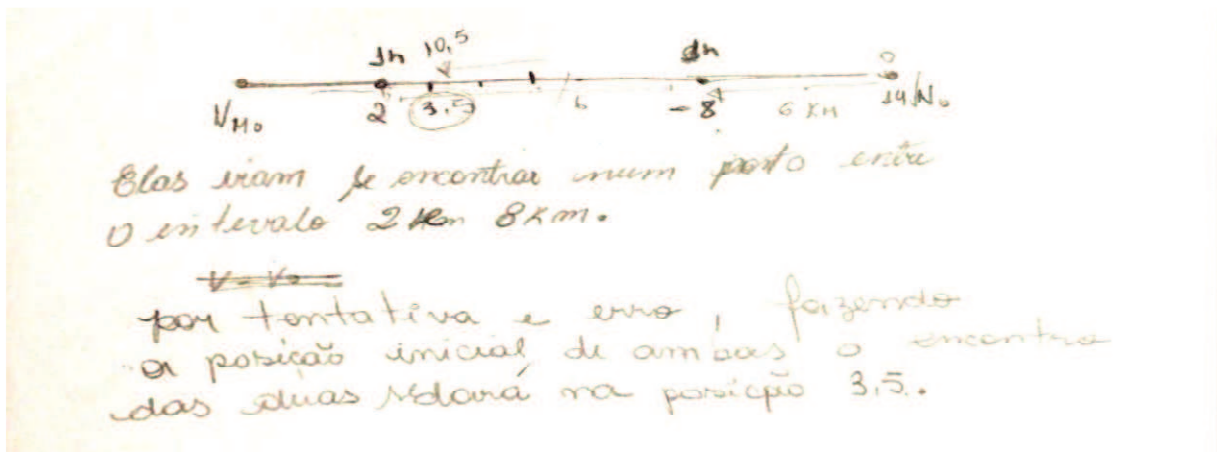 1h 10,5 1h 0
2 3,5 6 -8 6 KM 14
V M0 N0
Elas iriam se encontrar num ponto entre
O intervalo 2 Km 8 Km.
V = V0 =
por tentativa e erro, fazendo
a posição inicial de ambas o encontro
das duas se dará na posição 3,5.